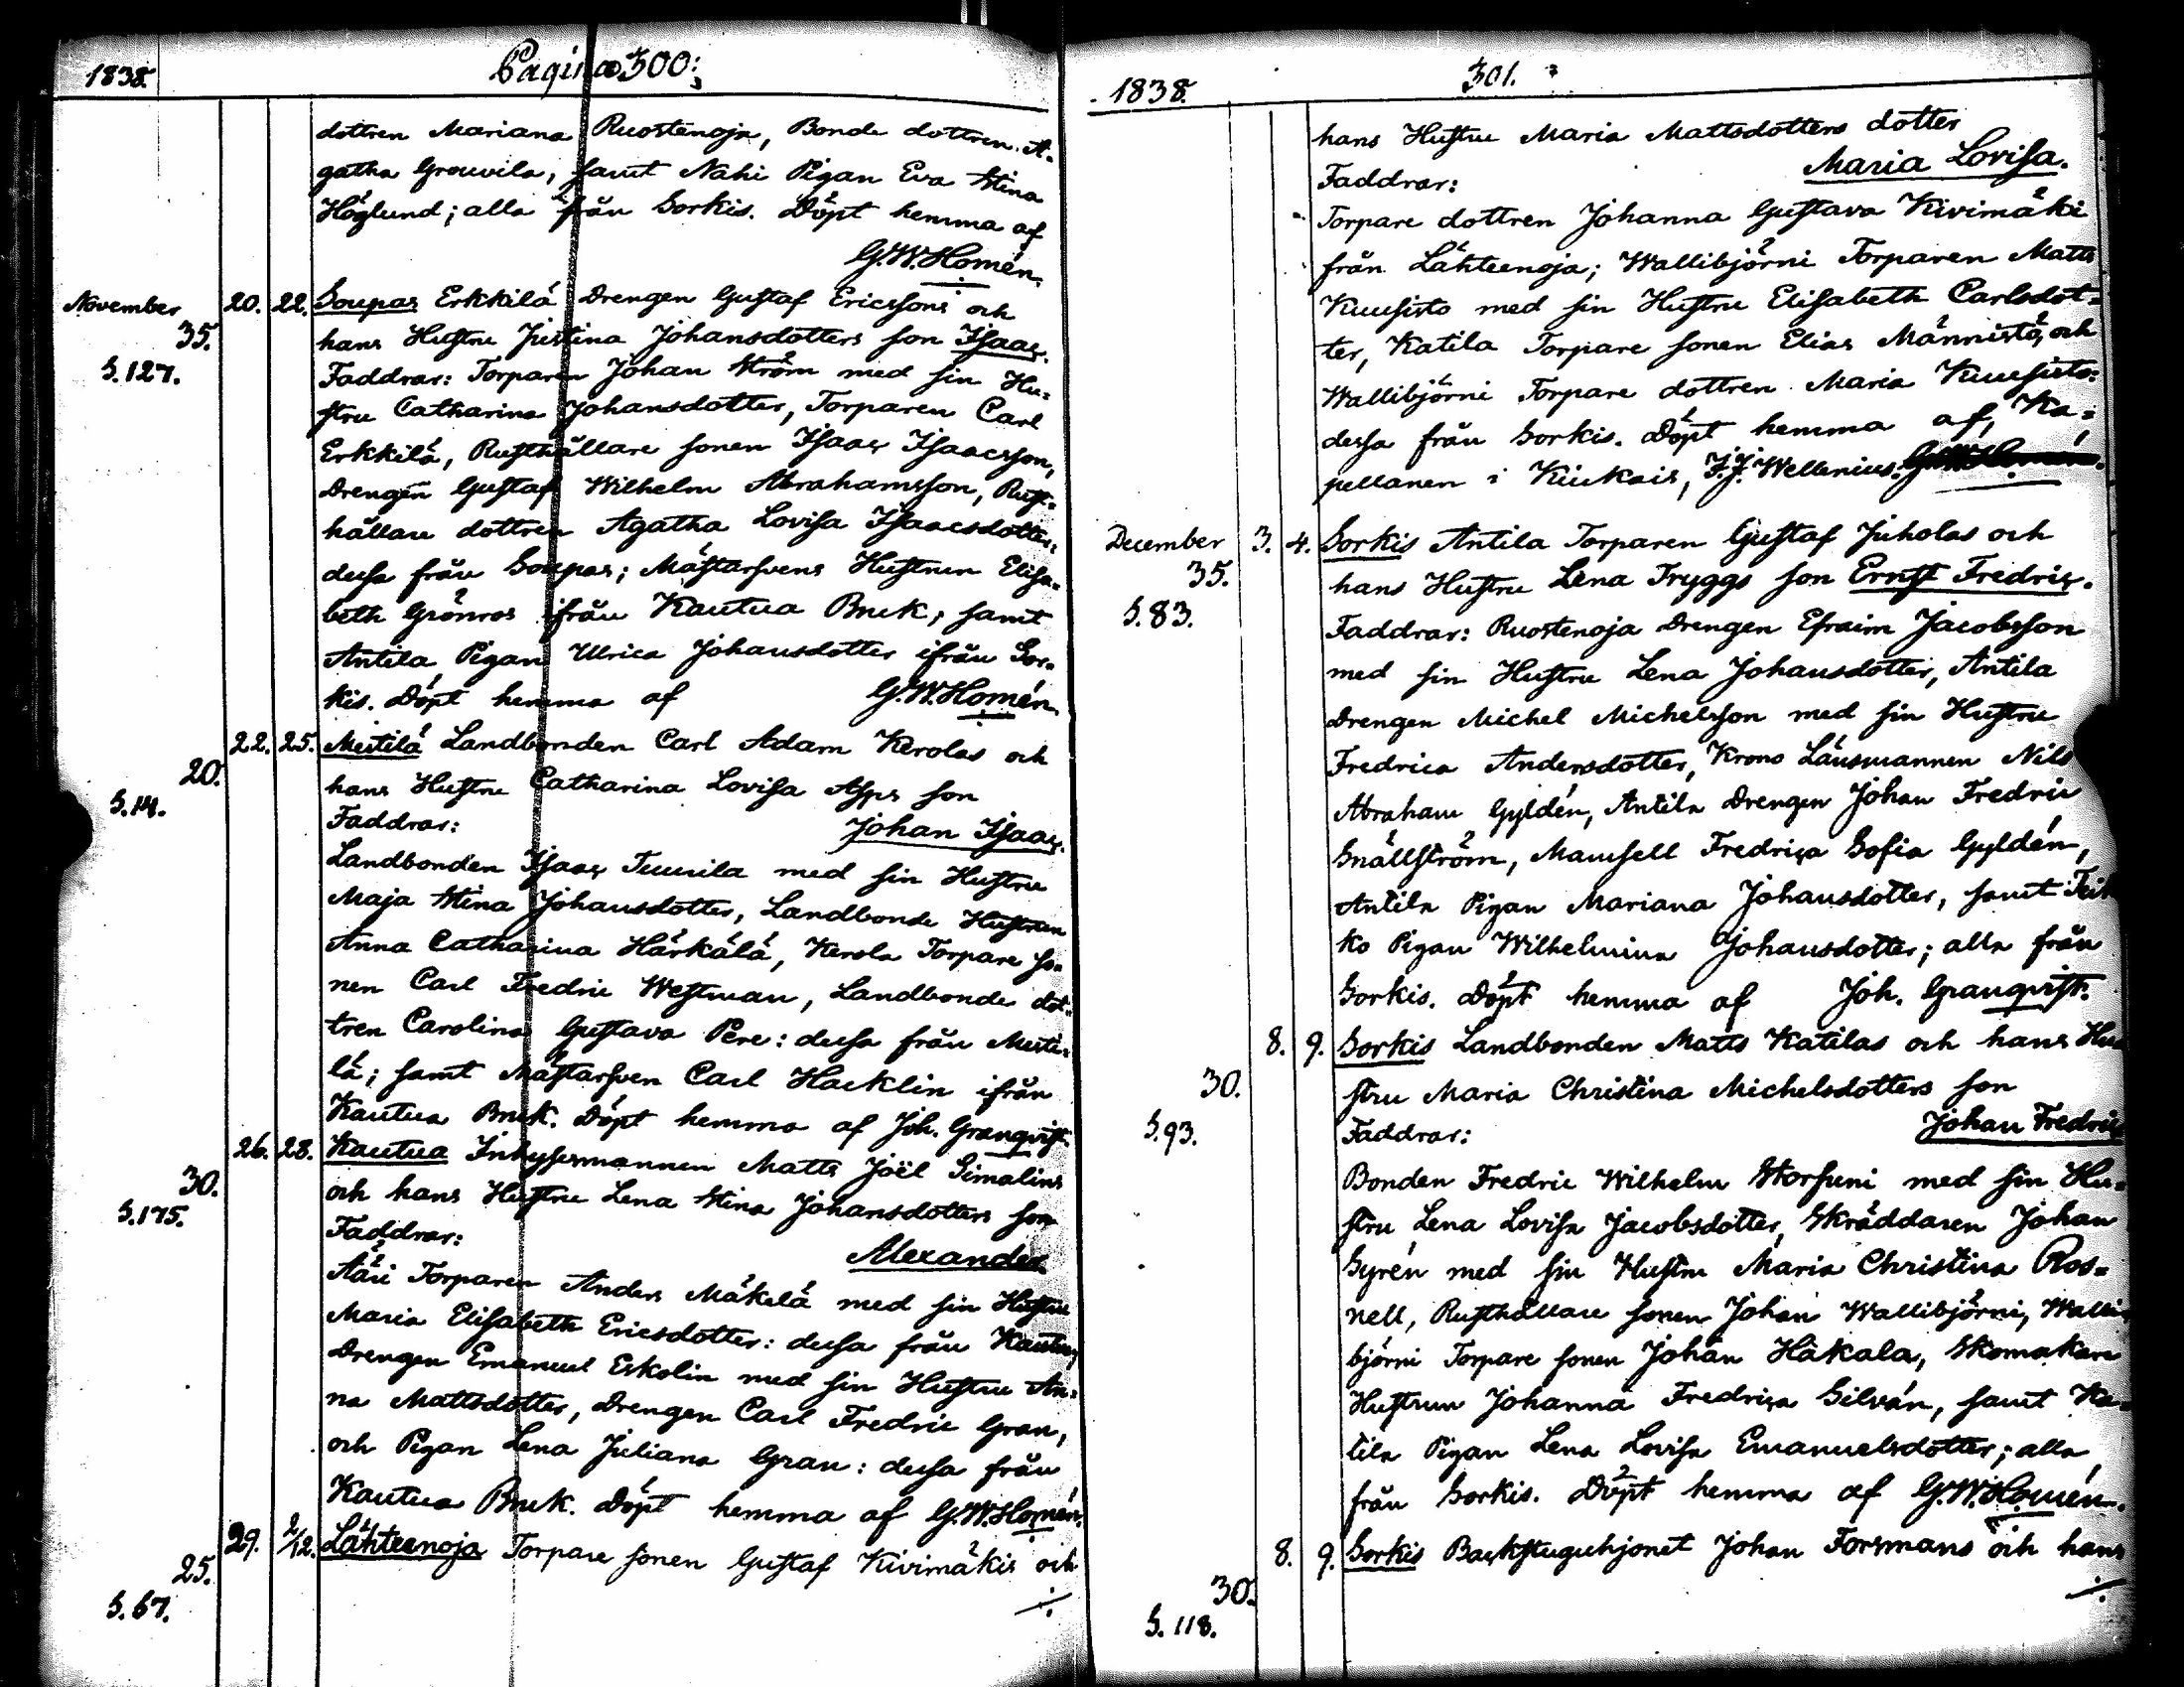 1838. Pagina 300:
dottren Mariana Ruostenoja, Bonde dottren A-
gatha Grouvila, samt Nahi Pigan Eva Stina
Höglund; alla från Sorkis. Döpt hemma af
G.W. Homén.
November 20. 22. Soupas Erkkilä Drengen Gustaf Ericssons och
35. hans Hustru Justina Johansdotters son Isaac.
S. 127. Faddrar: Torparen Johan Ström med sin Hu-
stru Catharina Johansdotter, Torparen Carl
Erkkilä, Rusthållare sonen Isaac Isaacsson,
Drengen Gustaf Wilhelm Abrahamsson, Rust-
hållare dottren Agatha Lovisa Isaacsdotter:
dessa från Soupas; Mästarsvens Hustrun Elisa-
beth Grönros ifrån Kautua Bruk, samt
Antila Pigan Ulrica Johansdotter ifrån Sor-
kis. Döpt hemma af G.W. Homén.
22. 25. Mestilä Landbonden Carl Adam Kerolas och
20. hans Hustru Catharina Lovisa Asps son
S. 14. Faddrar: Johan Isaac.
Landbonden Isaac Tuunila med sin Hustru
Maja Stina Johansdotter, Landbonde Hustrun
Anna Catharina Härkälä, Kerola Torpare so-
nen Carl Fredric Westman, Landbonde dot-
tren Carolina Gustava Pere: dessa från Mesti-
lä; samt Mästarsven Carl Hacklin ifrån
Kautua Bruk. Döpt hemma af Joh. Granqvist.
26. 28. Kautua Inhysesmannen Matts Joël Simalins
30. och hans Hustru Lena Stina Johansdotters son
S. 175. Faddrar: Alexander.
Ääri Torparen Anders Mäkelä med sin Hustru
Maria Elisabeth Ericsdotter: dessa från Kautua;
Drengen Emanuel Eskolin med sin Hustru An-
na Mattsdotter, Drengen Carl Fredric Gran,
och Pigan Lena Juliana Gran: dessa från
Kautua Bruk. Döpt hemma af G.W. Homén.
29. 2/12. Lähteenoja Torpare sonen Gustaf Kivimäkis och
25.
S. 67.
1838. 301.
hans Hustru Maria Mattsdotters dotter
Faddrar: Maria Lovisa.
Torpare dottren Johanna Gustava Kivimäki
från Lähteenoja; Wallibjörni Torparen Matts
Kuusisto med sin Hustru Elisabeth Carlsdot-
ter, Katila Torpare sonen Elias Männistö, och
Wallibjörni Torpare dottren Maria Kuusisto:
dessa från Sorkis. Döpt hemma af, Ka-
pellanen i Kiukais, J.J. Wellenius. G.W. Homén.
December 3. 4. Sorkis Antila Torparen Gustaf Juholas och
35. hans Hustru Lena Tryggs son Ernst Fredric.
S. 83. Faddrar: Ruostenoja Drengen Efraim Jacobsson
med sin Hustru Lena Johansdotter, Antila
Drengen Michel Michelsson med sin Hustru
Fredrica Andersdotter, Krono Länsmannen Nils
Abraham Gyldén, Antila Drengen Johan Fredric
Snällström, Mamsell Fredrica Sofia Gyldén,
Antila Pigan Mariana Johansdotter, samt
ko Pigan Wilhelmina Johansdotter; alla från
Sorkis. Döpt hemma af Joh. Granqvist.
8. 9. Sorkis Landbonden Matts Katilas och hans Hu-
30. stru Maria Christina Michelsdotters son
S. 93. Faddrar: Johan Fredric
Bonden Fredric Wilhelm Storsuni med sin Hu-
stru Lena Lovisa Jacobsdotter, Skräddaren Johan
Syrén med sin Hustru Maria Christina Ros-
nell, Rusthållare sonen Johan Wallibjörni, Walli-
björni Torpare sonen Johan Häkala, Skomakare
Hustrun Johanna Fredrica Silván, samt Ka-
tila Pigan Lena Lovisa Emanuelsdotter; alla
från Sorkis. Döpt hemma af G.W. Homén.
8. 9. Sorkis Backstuguhjonet Johan Forsmans och hans
30.
S. 118.